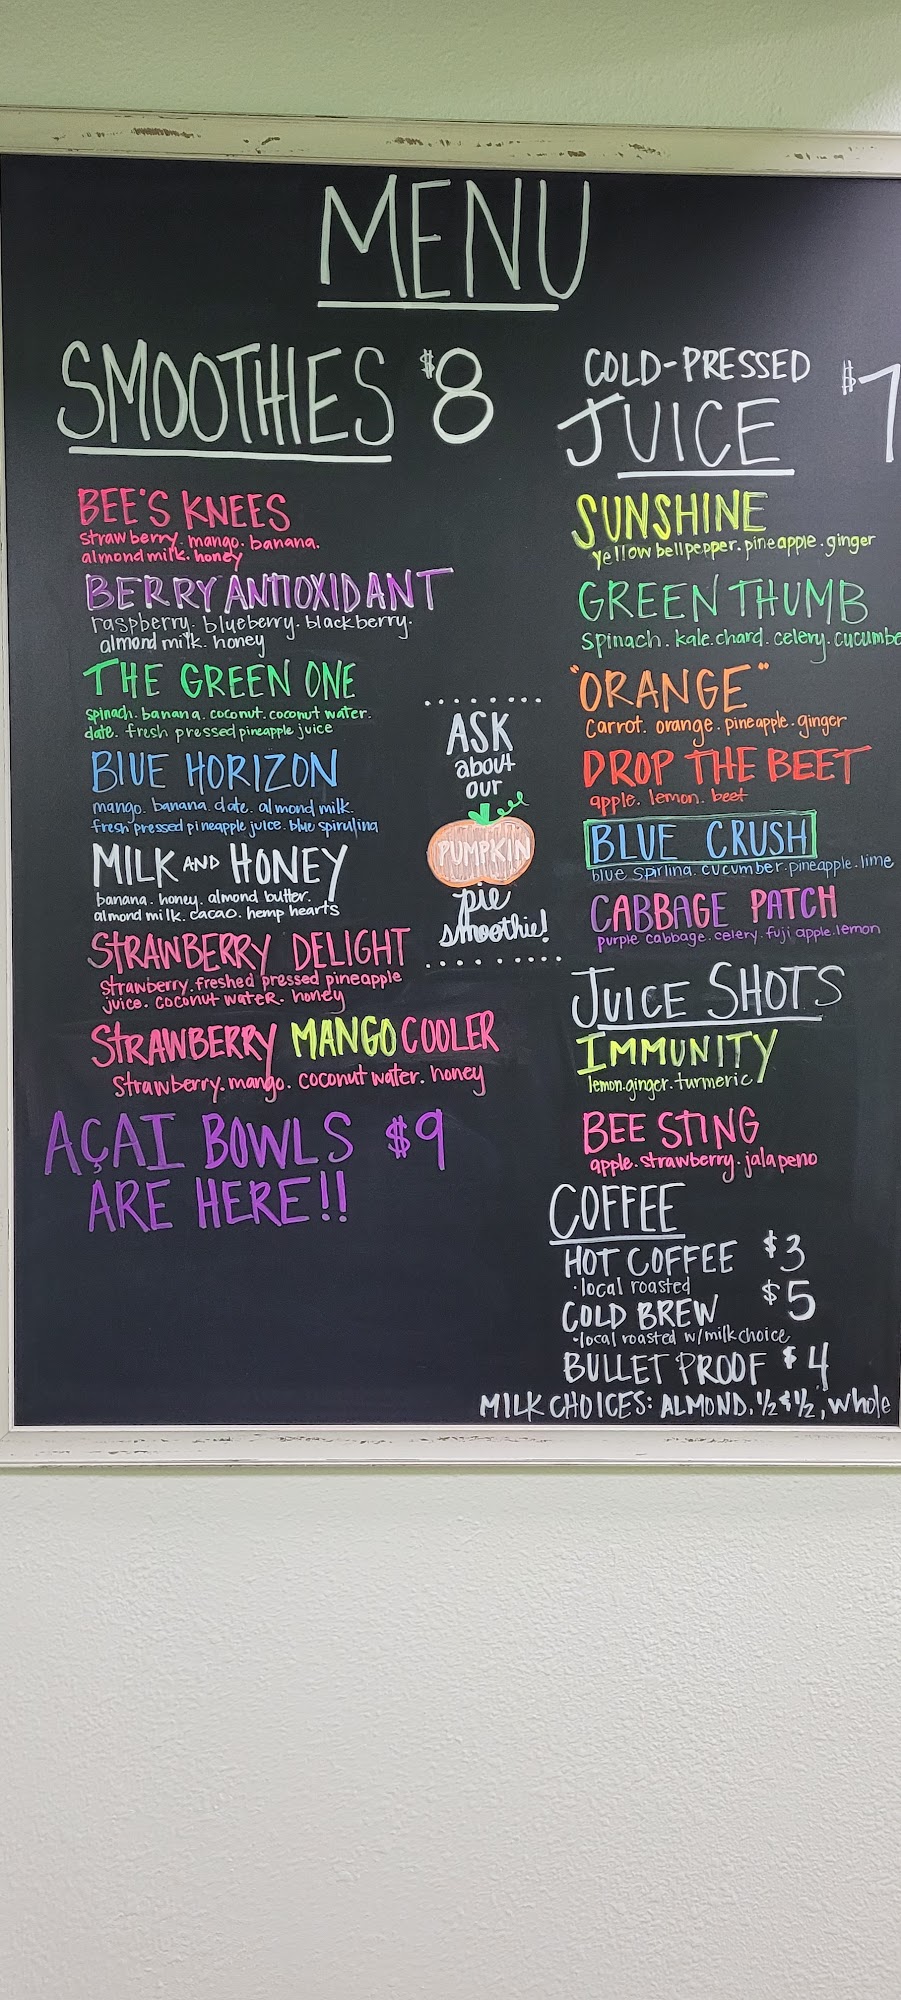 MENU
SMOOTHIES $8
BEE'S KNEES
strawberry. mango. banana.
almond milk. honey
BERRY ANTIOXIDANT
raspberry. blueberry. blackberry.
almond milk. honey
THE GREEN ONE
spinach. banana. coconut. coconut water.
date. fresh pressed pineapple juice
BLUE HORIZON
mango. banana. date. almond milk.
fresh pressed pineapple juice. blue spirulina
MILK AND HONEY
banana. honey. almond butter.
almond milk. cacao. hemp hearts
STRAWBERRY DELIGHT
strawberry. freshed pressed pineapple
juice. coconut water. honey
STRAWBERRY MANGO COOLER
strawberry. mango. coconut water. honey
AÇAI BOWLS $9
ARE HERE!!
ASK
about
our
PUMPKIN
pie
smoothie!
COLD-PRESSED
JUICE $7
SUNSHINE
yellow bell pepper. pineapple. ginger
GREEN THUMB
spinach. kale. chard. celery. cucumbe
"ORANGE"
carrot. orange. pineapple. ginger
DROP THE BEET
apple. lemon. beet
BLUE CRUSH
blue spirlina. cucumber. pineapple. lime
CABBAGE PATCH
purple cabbage. celery. fuji apple. lemon
JUICE SHOTS
IMMUNITY
lemon. ginger. turmeric
BEE STING
apple. strawberry. jalapeno
COFFEE
HOT COFFEE $3
·local roasted
COLD BREW $5
·local roasted w/milk choice
BULLET PROOF $4
MILK CHOICES: ALMOND, 1/2 & 1/2, whole